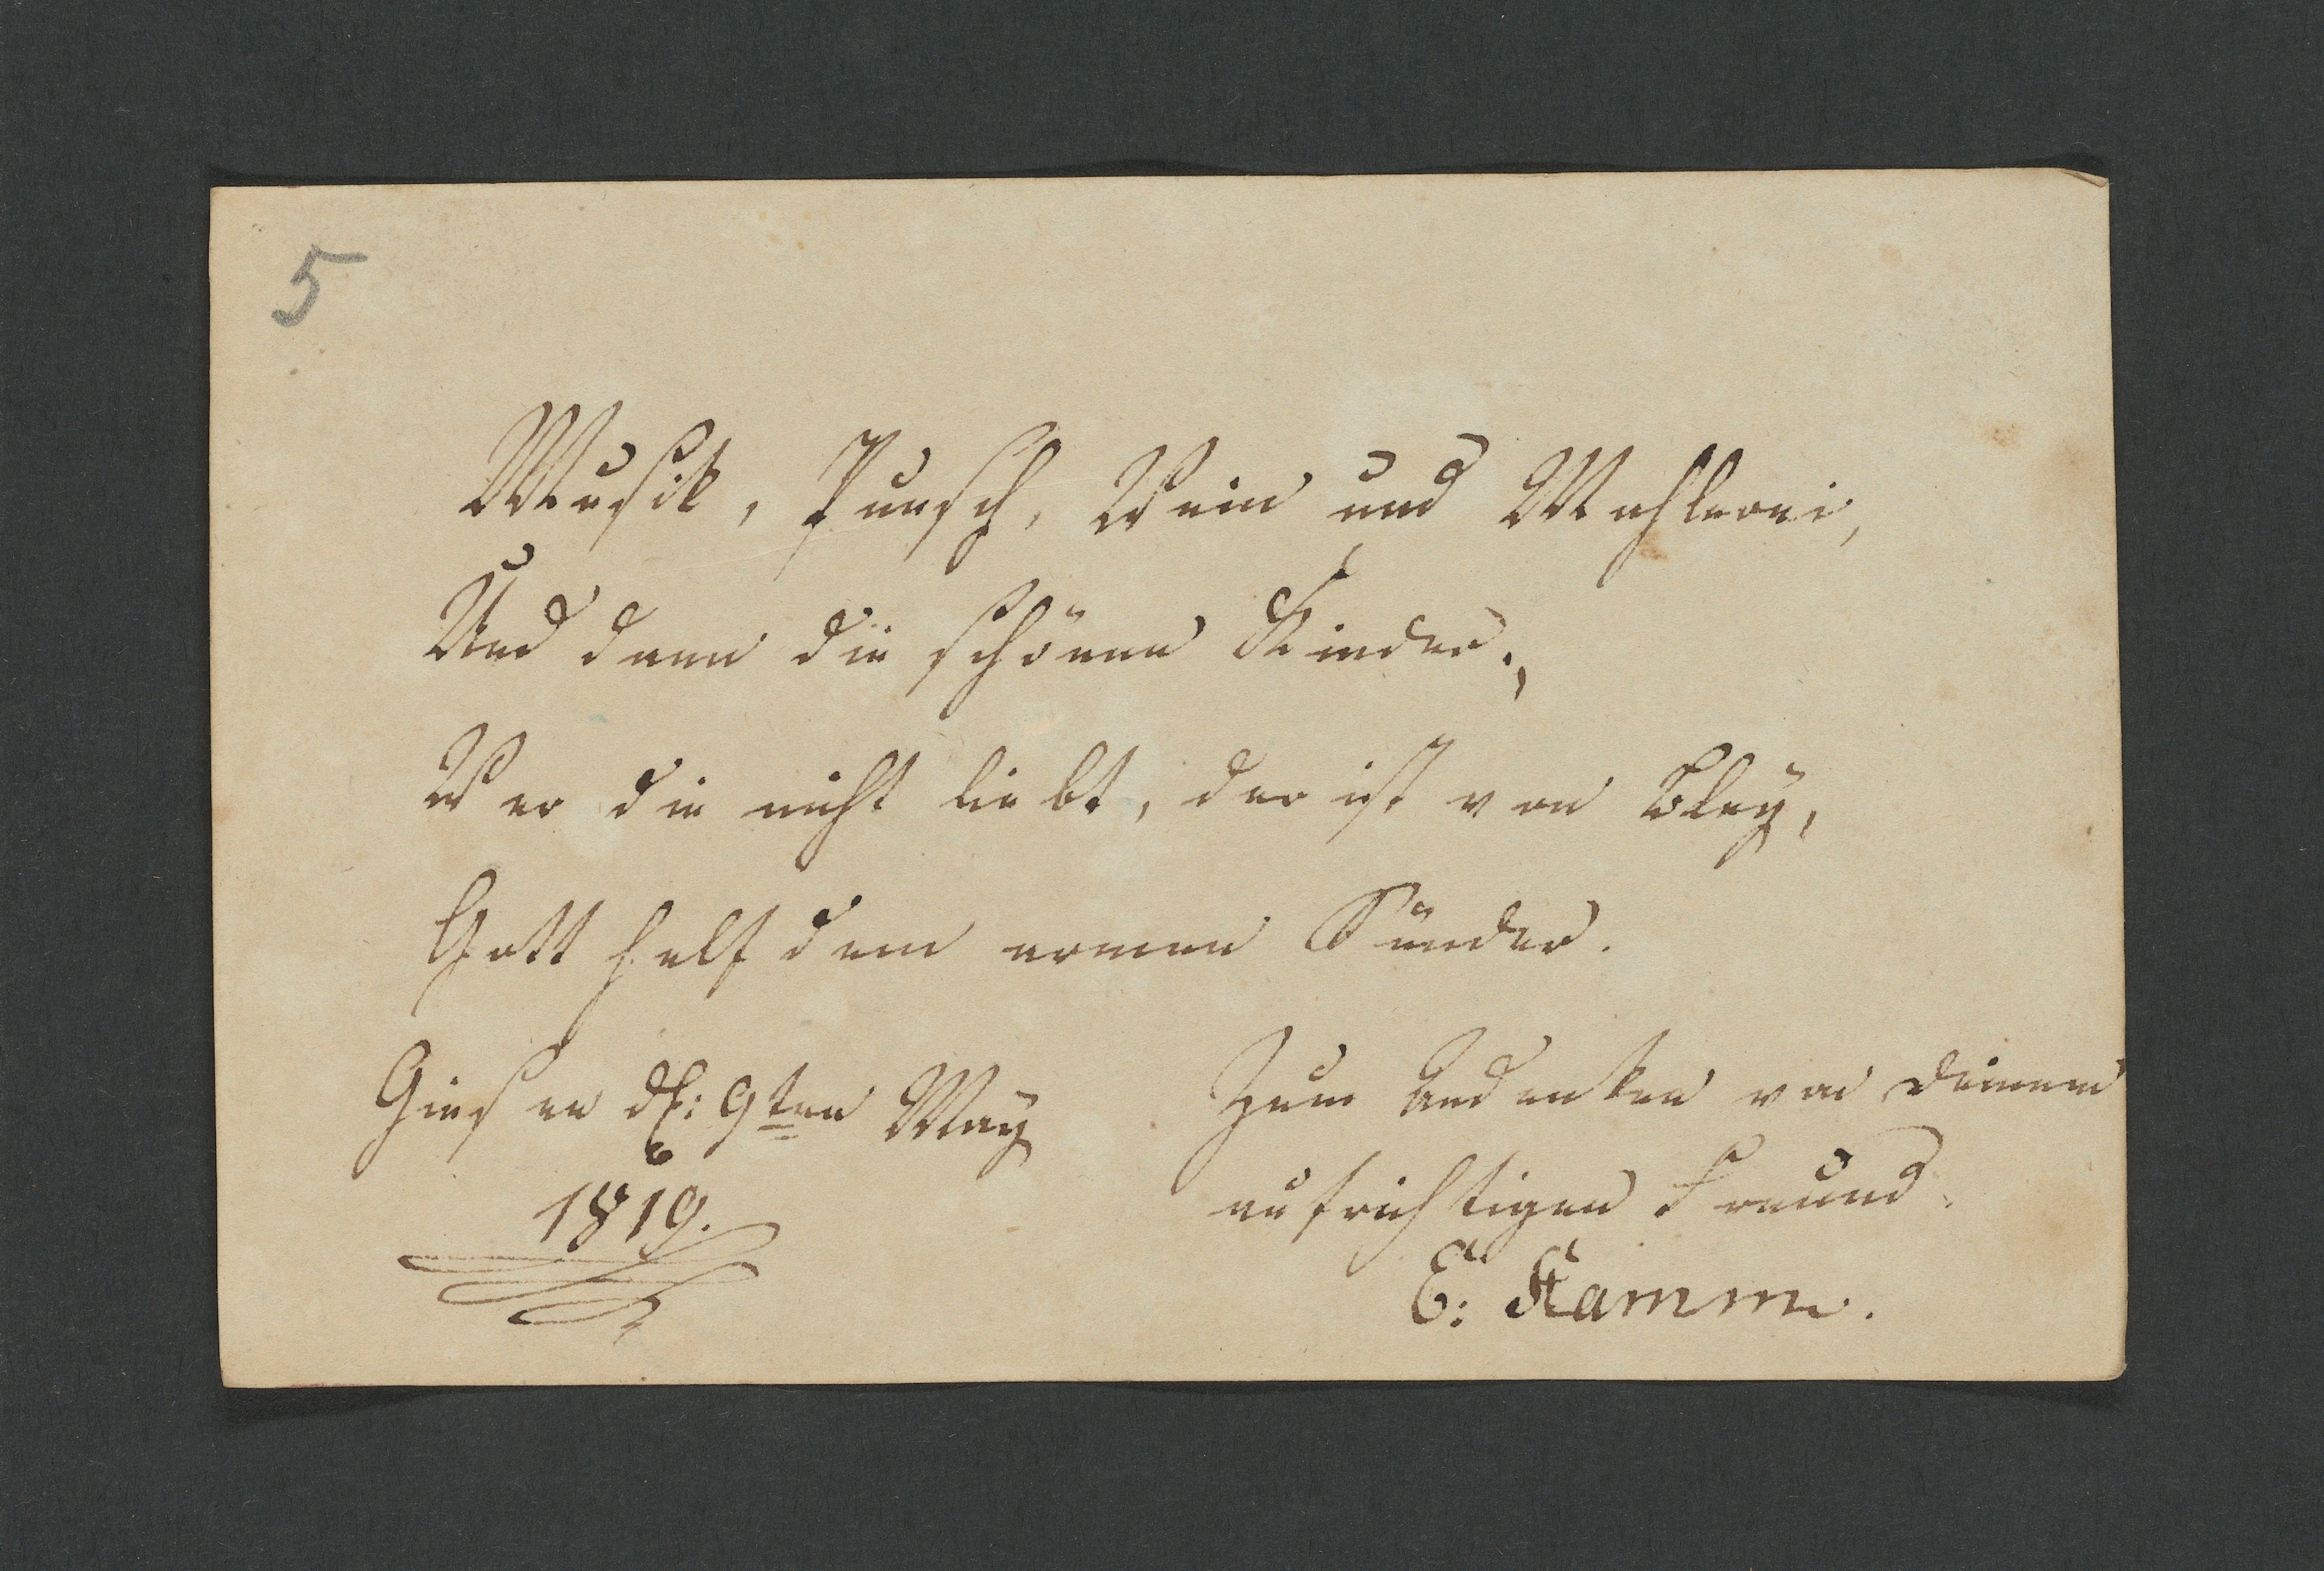 5
Musik, Punsch, Wein und Mahlerei,
Und dann die schönen Kinder.,
Wer die nicht liebt, der ist von Bley,
Gott helf dem armen Sünder.
Giesen d: 9ten May
1819.
Zum Andenken von deinem
aufrichtigen Freund.
E: Kamm.